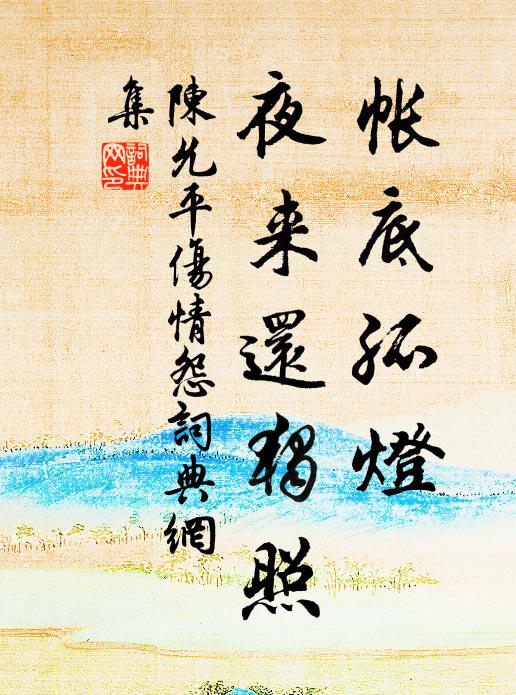 帐底孤燈
夜来還獨照
陳允平傷情怨詞典網
集
詞典
网印